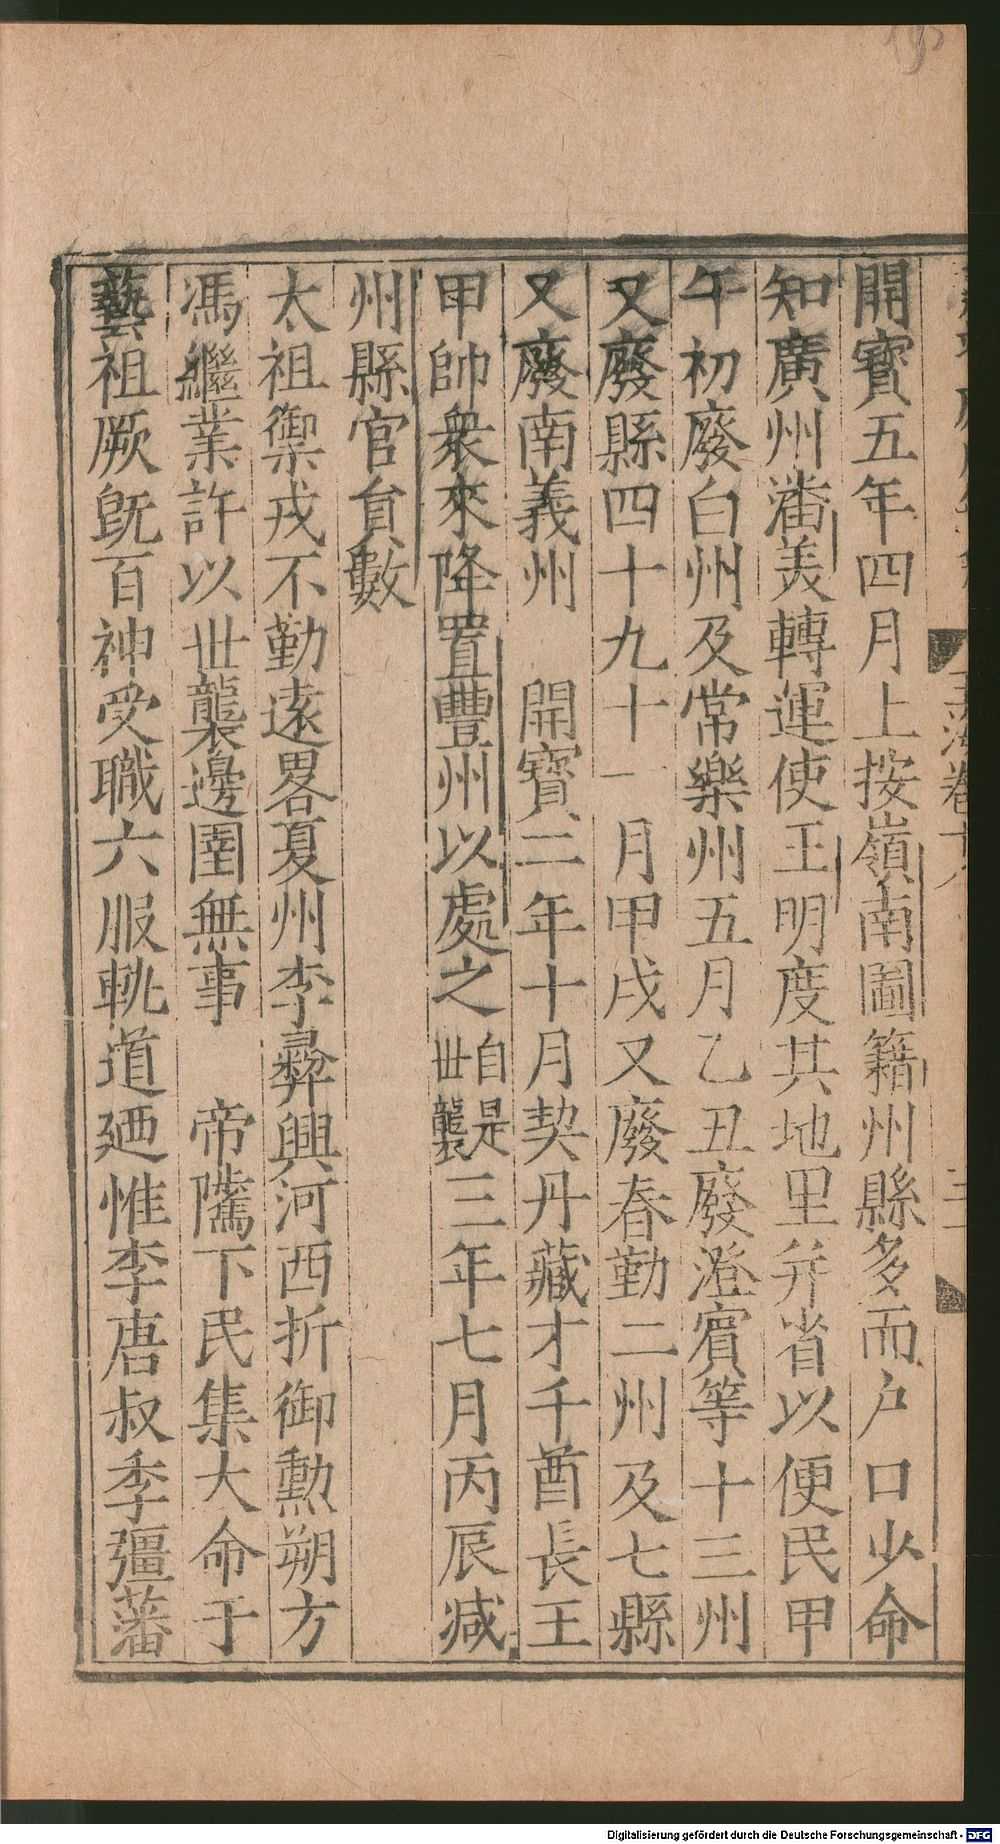 玉海卷十八
開寶五年四月上按嶺南圖籍州縣多而户口少命
知廣州潘美轉運使王明度其地里并省以便民甲
午初廢白州及常樂州五月乙丑廢澄賓等十三州
又廢縣四十九十一月甲戌又廢春勤二州及七縣
又廢南義州　開寶二年十月契丹藏才千酋長王
甲帥衆來降置豐州以處之自是世襲三年七月丙辰减
州縣官貟數
太祖禦戎不勤遠畧夏州李彞興河西折御勲朔方
馮繼業許以世襲邊圉無事　帝隲下民集大命于
藝祖厥旣百神受職六服軌道廼惟李唐叔季彊藩
Digitalisierung gefördert durch die Deutsche Forschungsgemeinschaft - DFG